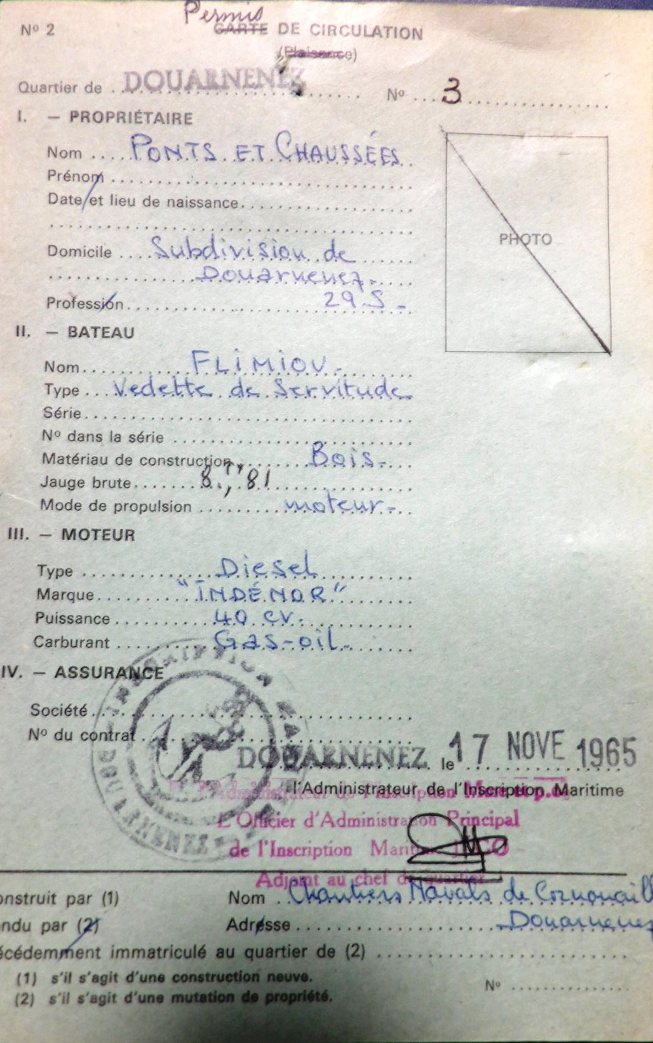 Nº 2
Permis
CARTE DE CIRCULATION
(Plaisance)
Quartier de DOUARNENEZ Nº 3
I. — PROPRIÉTAIRE
Nom PONTS ET CHAUSSÉES
Prénom
Date et lieu de naissance
PHOTO
Domicile Subdivision de
Douarnenez.
Profession 29 S -
II. — BATEAU
Nom FLIMIOU -
Type Vedette de Servitude
Série
Nº dans la série
Matériau de construction Bois -
Jauge brute 8,81
Mode de propulsion moteur -
III. — MOTEUR
Type Diesel
Marque "INDÉNOR"
Puissance 40 cv.
Carburant Gas-oil.
IV. — ASSURANCE
Société
Nº du contrat
DOUARNENEZ le 17 NOVE 1965
l'Administrateur de l'Inscription Maritime
L'Officier d'Administration Principal
de l'Inscription
Adjoint au chef de quartier
DOUARNENEZ
onstruit par (1) Nom Chantiers Navals de Cornouaill
ndu par (2) Adresse Douarnenez
écédemment immatriculé au quartier de (2)
(1) s'il s'agit d'une construction neuve.
Nº
(2) s'il s'agit d'une mutation de propriété.